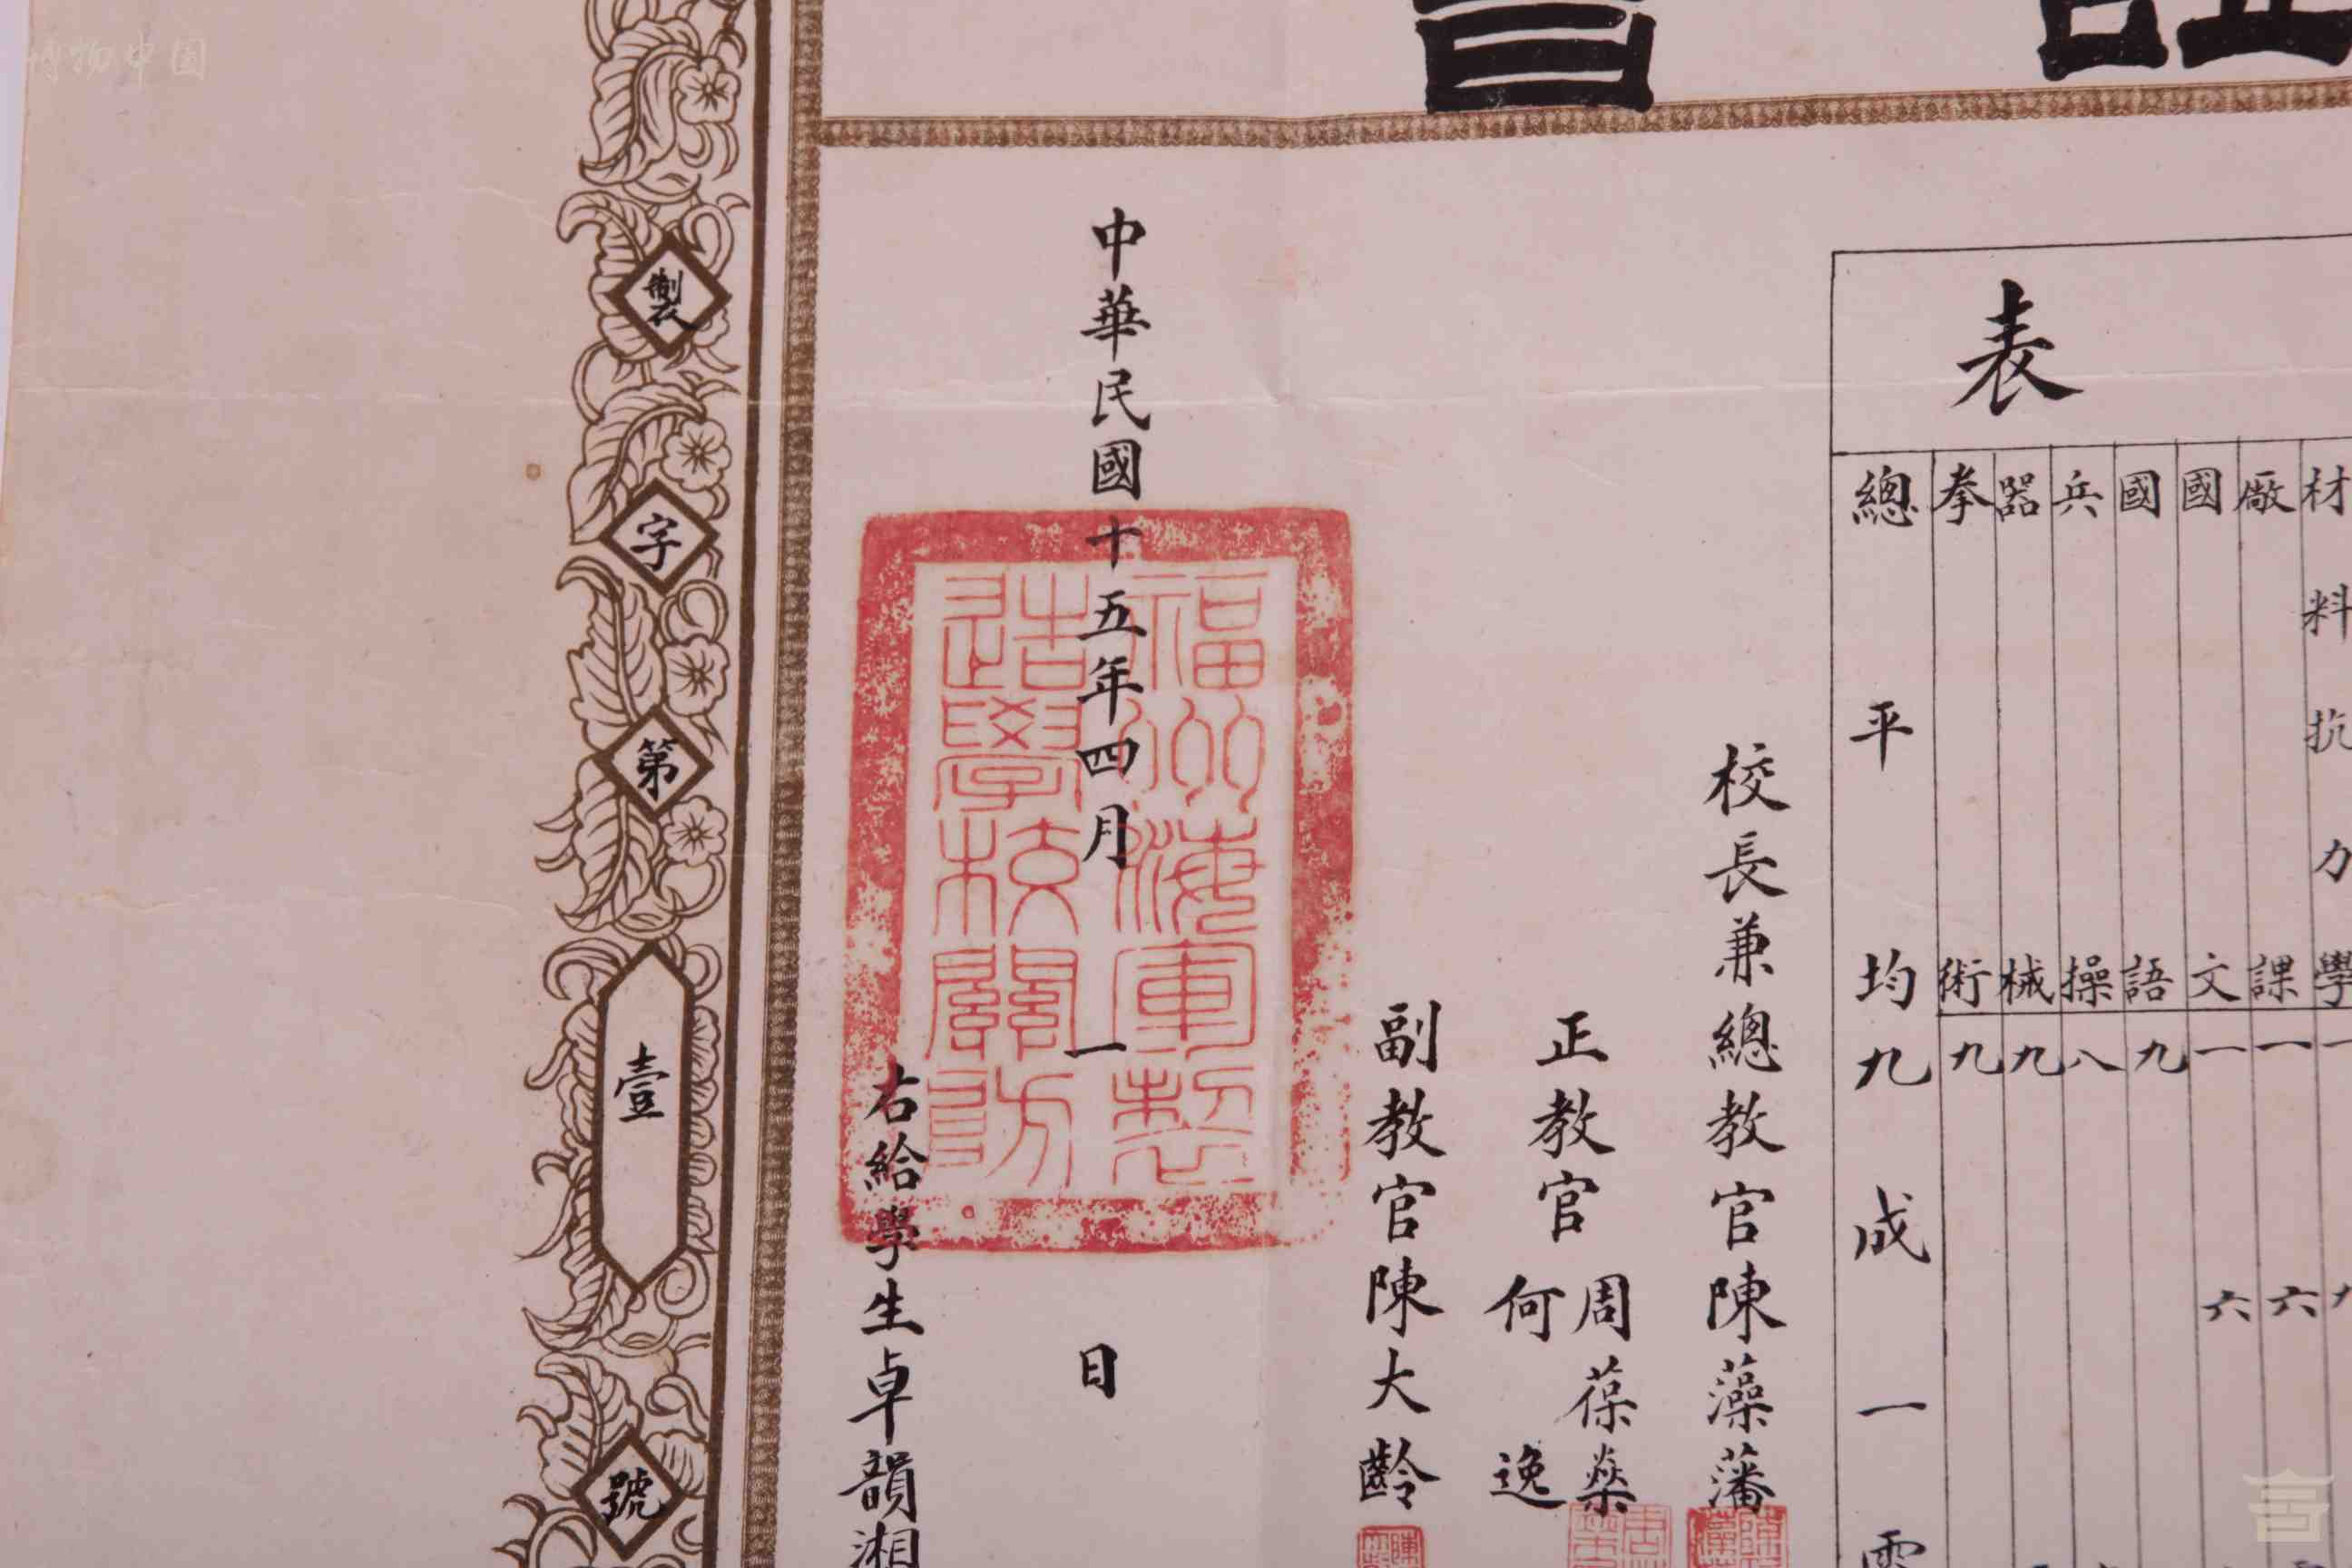 證書
表
材料抗力學一九
廠課一六
國文一六
國語九
兵操八
器械九
拳術九
總平均九成一零
校長兼總教官陳藻藩
正教官周葆燊
何逸
副教官陳大齡
中華民國十五年四月一日
福州海軍製
造學校關防
右給學生卓韻湘
製字第壹號
博物中国